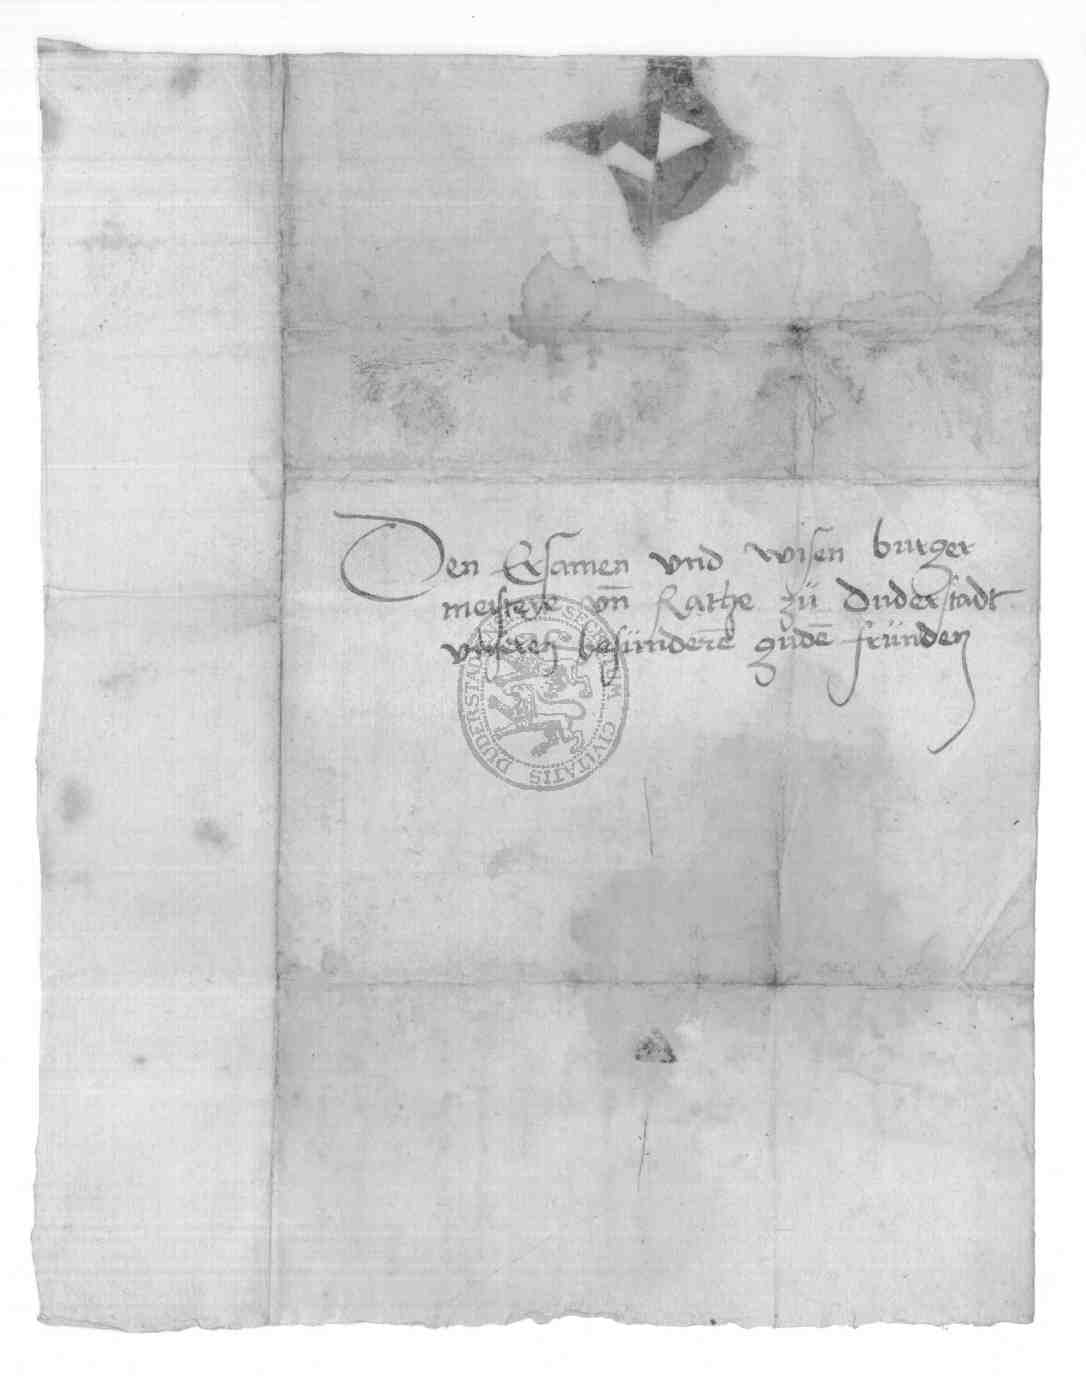 Den Ersamen vnd wisen burger
meistere vn̄ Rathe zü Duderstadt
vnseren besünderē gudē fründen
SECRETUM CIVITATIS DUDERSTADT